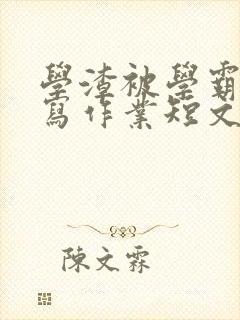 學渣被學霸
寫作業短文
陳文霖